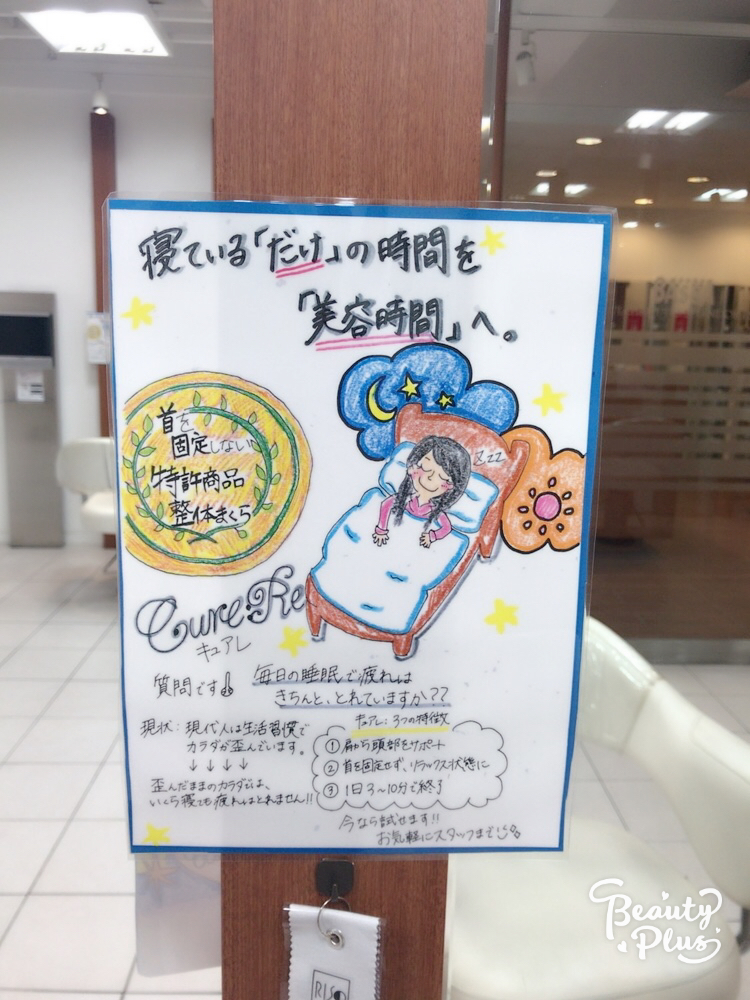 寝ている「だけ」の時間を
「美容時間」へ。
首を
固定しない
特許商品
整体まくら
zzz
Cure:Re
キュアレ
質問です
毎日の睡眠で疲れは
きちんと、とれていますか??
現状:現代人は生活習慣で
カラダが歪んでいます。
↓ ↓ ↓ ↓
歪んだままのカラダでは、
いくら寝ても疲れはとれません!!
キュアレ:3つの特徴
① 肩から頭部をサポート
② 首を固定せず、リラックス状態に
③ 1日3~10分で終了
今なら試せます!!
お気軽にスタッフまで
Beauty
Plus